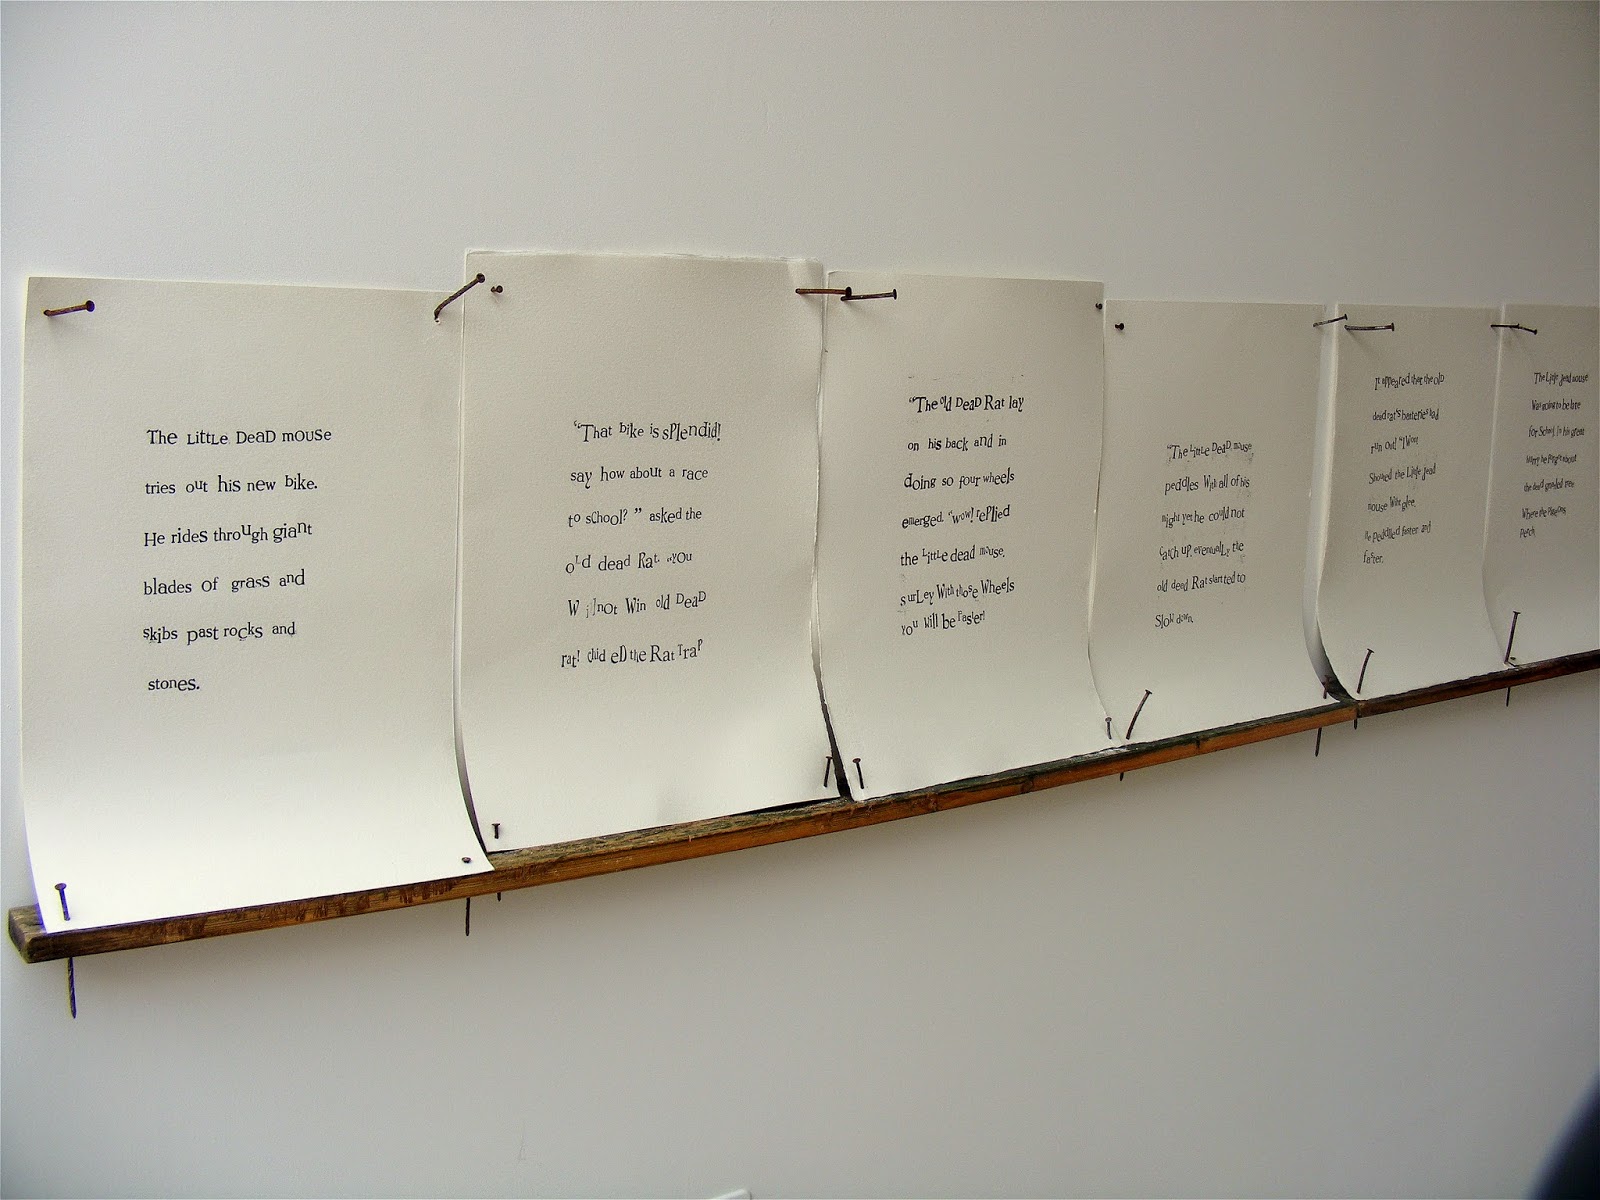 The Little Dead mouse
tries out his new bike.
He rides through giant
blades of grass and
skibs past rocks and
stones.
"That bike is splendid!
say how about a race
to school?" asked the
old dead Rat "you
Will not Win old Dead
rat! chid ed the Rat Trap
"The old Dead Rat lay
on his back and in
doing so four wheels
emerged. "wow! replied
the Little dead mouse.
surley With those Wheels
you will be faster!
"The Little Dead mouse
peddles With all of his
might yet he could not
catch up. eventually the
old dead Rat startted to
Slow down.
It appeared that the old
dead rat's batteries had
run out! "I Won!
Shouted the Little dead
mouse With glee.
He peddled faster and
faster.
The Little dead mouse
Was going to be late
for School In his great
hurry he forgot about
the tree
Where the
Perch.